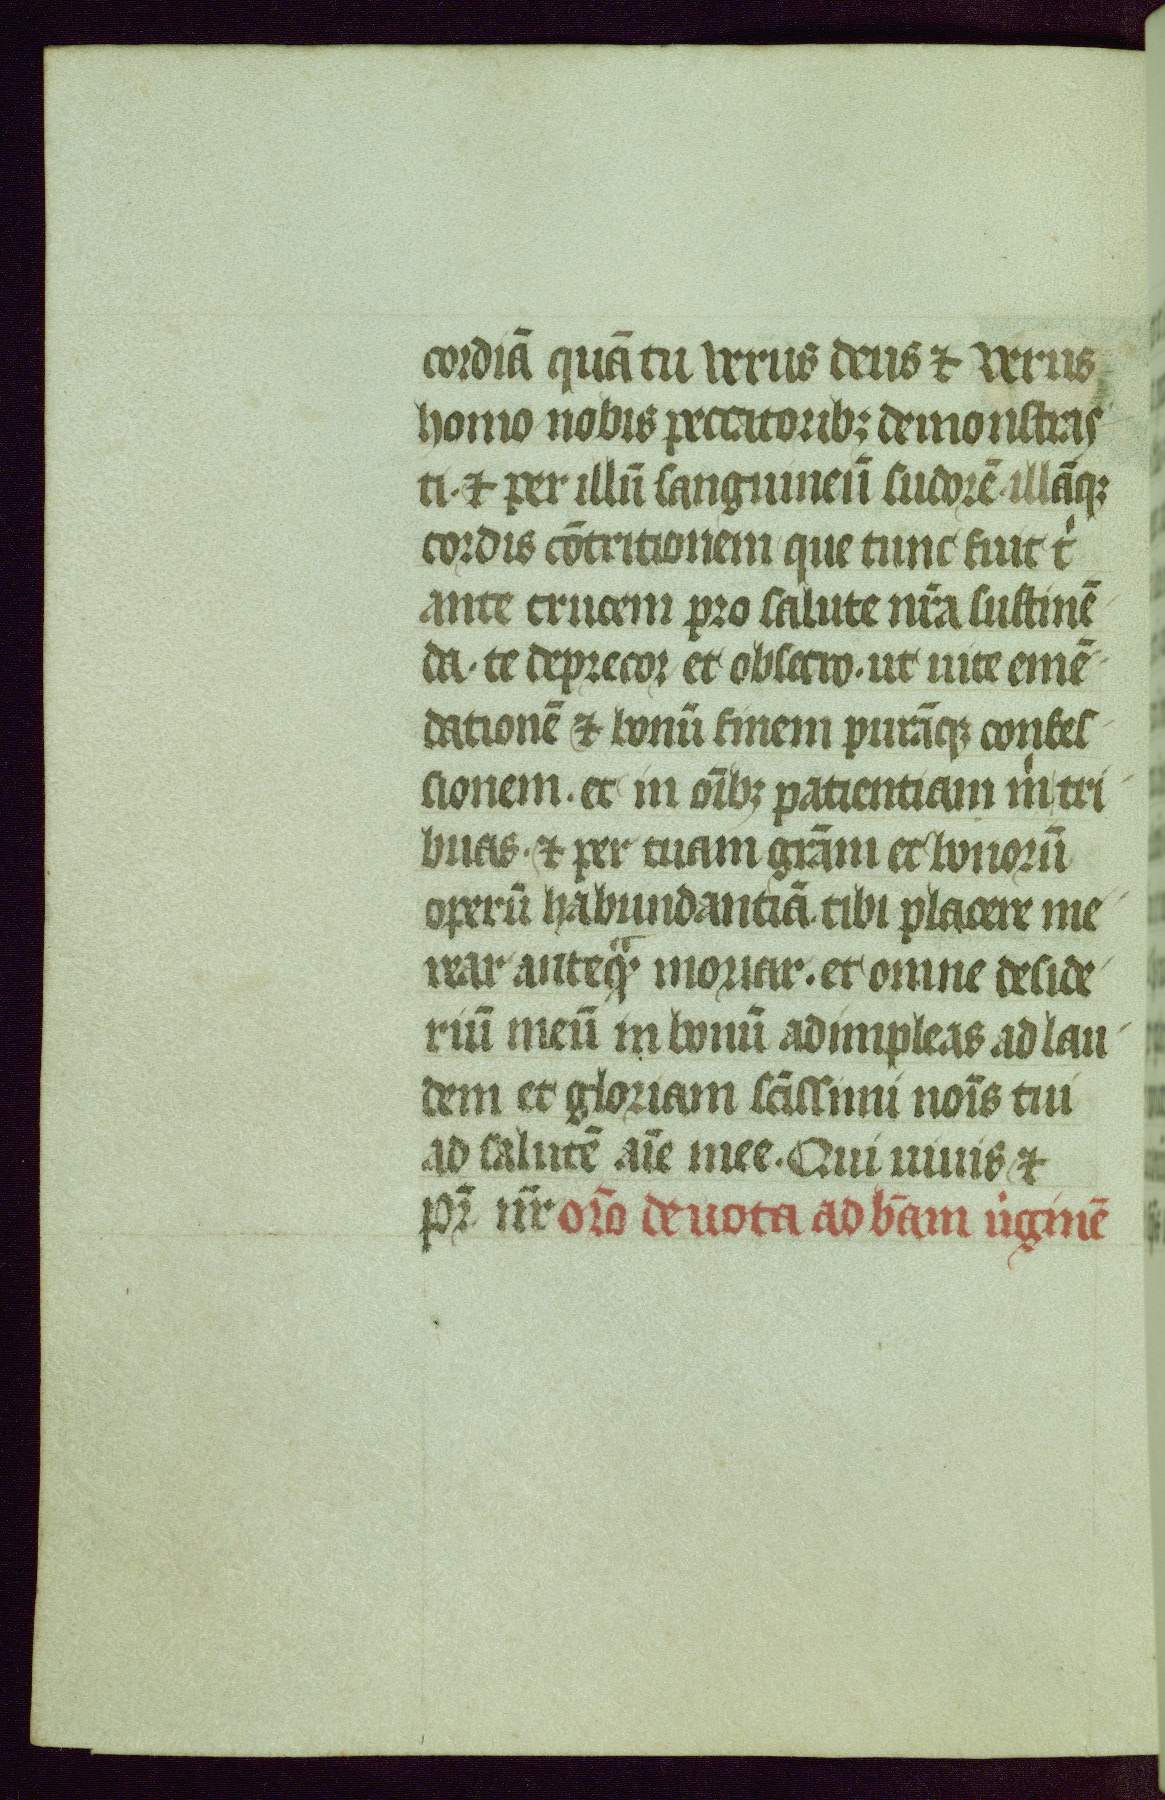 cordiā quā tu verus deus ⁊ verus
homo nobis peccatoribꝫ demonstras
ti. ⁊ per illū sanguineū sudorē illāqꝫ
cordis cōtritionem que tunc fuit tⁱ
ante crucem pro salute nr̄a sustinē
da. te deprecor et obsecro. ut uite emē
dationē ⁊ bonū finem purāqꝫ confes
sionem. et in oībꝫ patientiam mⁱ tri
buas. ⁊ per tuam grām et bonorū
operū habundantiā tibi placere me
rear anteqᷓ moriar. et omne deside
riū meū in bonū adimpleas ad lau
dem et gloriam sc̄issimi noīs tui
ad salutē aīe mee. Qui uiuis ⁊
pr̄ nr̄ orō deuota ad bēam uⁱginē